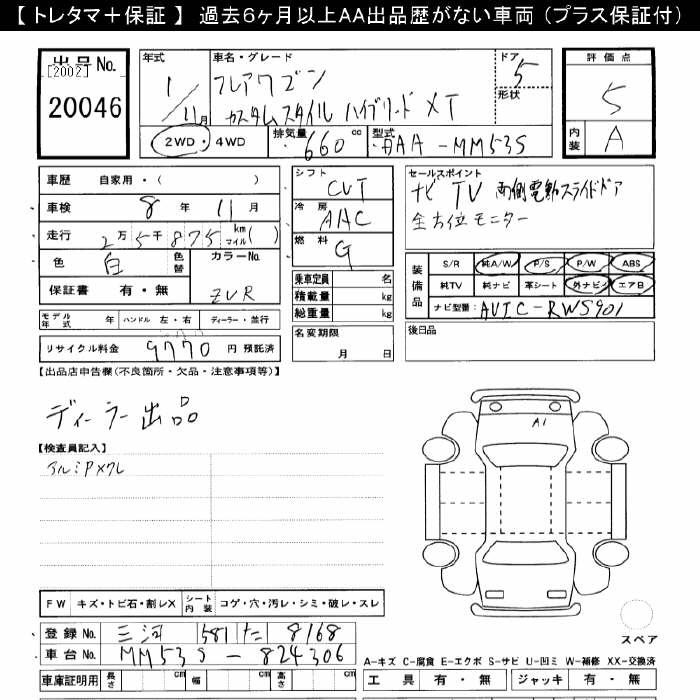 【 トレタマ＋保証 】 過去６ヶ月以上ＡＡ出品歴がない車両（プラス保証付）
出品No. [2002] 20046
年式 1/11月
車名・グレード フレアワゴン カスタムスタイル ハイブリッド XT
ドア 5
形状
評価点 5
内装 A
2WD・4WD 排気量 660 cc 型式 DAA-MM53S
車歴 自家用・( )
車検 8 年 11 月
走行 2万 5千 875 km マイル( )
色 白 色替 カラーNo. ZVR
保証書 有・無
モデル年式 年 ハンドル 左・右 ディーラー・並行
リサイクル料金 9770 円 預託済
シフト CVT
冷房 AAC
燃料 G
乗車定員 名
積載量 kg
総重量 kg
名変期限 月 日
セールスポイント
ナビ TV 両側電動スライドドア
全方位モニター
装備品 S/R 純A/W P/S P/W ABS
純TV 純ナビ 革シート 外ナビ エアB
ナビ型番: AVIC-RW5901
後日品
【出品店申告欄(不良箇所・欠品・注意事項等)】
ディーラー出品
【検査員記入】
アルミPメクレ
A1
FW キズ・トビ石・割レX シート内装 コゲ・穴・汚レ・シミ・破レ・スレ
登録No. 三河 581 た 8168
車台No. MM53S-824306
車庫証明用 長さ cm 幅 cm 高さ cm
スペア
A-キズ C-腐食 E-エクボ S-サビ U-凹ミ W-補修 XX-交換済
工具 有・無 ジャッキ 有・無